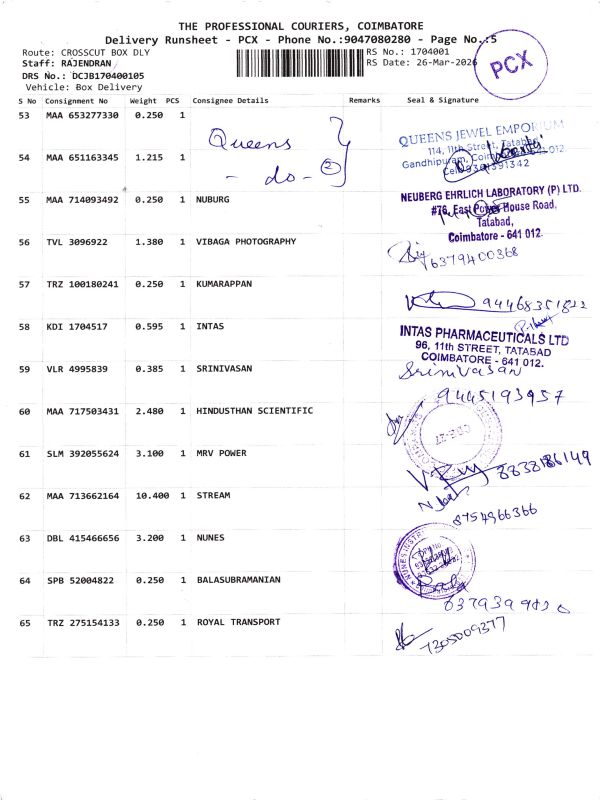 THE PROFESSIONAL COURIERS, COIMBATORE
Delivery Runsheet - PCX - Phone No.:9047080280 - Page No.:5
Route: CROSSCUT BOX DLY
Staff: RAJENDRAN
DRS No.: DCJB170400105
Vehicle: Box Delivery
RS No.: 1704001
RS Date: 26-Mar-2026
PCX
S No Consignment No Weight PCS Consignee Details Remarks Seal & Signature
53 MAA 653277330 0.250 1 Queens
QUEENS JEWEL EMPORIUM
114, 11th Street, Tatabad
Gandhipuram, Coimbatore-641 012.
54 MAA 651163345 1.215 1 - do - 2
55 MAA 714093492 0.250 1 NUBURG
NEUBERG EHRLICH LABORATORY (P) LTD.
#76, East Power House Road,
Tatabad,
Coimbatore - 641 012.
56 TVL 3096922 1.380 1 VIBAGA PHOTOGRAPHY
6379400368
57 TRZ 100180241 0.250 1 KUMARAPPAN
58 KDI 1704517 0.595 1 INTAS
INTAS PHARMACEUTICALS LTD
96, 11th STREET, TATABAD
COIMBATORE - 641 012.
59 VLR 4995839 0.385 1 SRINIVASAN
Srinivasan
9445193957
60 MAA 717503431 2.480 1 HINDUSTHAN SCIENTIFIC
61 SLM 392055624 3.100 1 MRV POWER
8838186149
62 MAA 713662164 10.400 1 STREAM
8754966366
63 DBL 415466656 3.200 1 NUNES
64 SPB 52004822 0.250 1 BALASUBRAMANIAN
65 TRZ 275154133 0.250 1 ROYAL TRANSPORT
7305009377